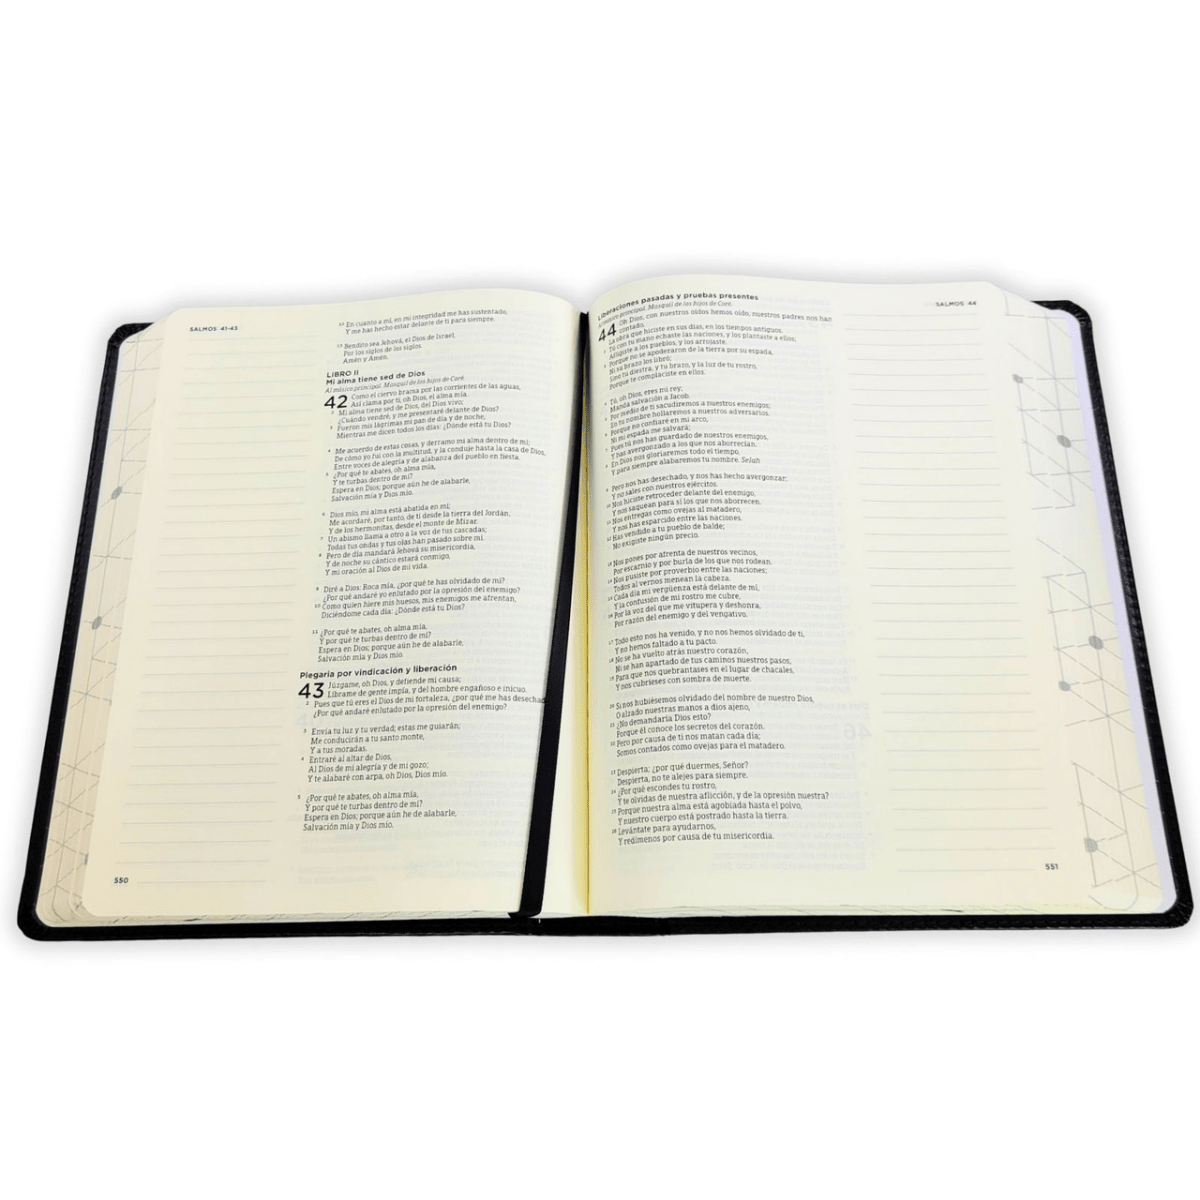 SALMOS 41-43
12 En cuanto a mí, en mi integridad me has sustentado,
Y me has hecho estar delante de ti para siempre.
13 Bendito sea Jehová, el Dios de Israel,
Por los siglos de los siglos.
Amén y Amén.
LIBRO II
Mi alma tiene sed de Dios
Al músico principal. Masquil de los hijos de Coré.
42 Como el ciervo brama por las corrientes de las aguas,
Así clama por ti, oh Dios, el alma mía.
2 Mi alma tiene sed de Dios, del Dios vivo;
¿Cuándo vendré, y me presentaré delante de Dios?
3 Fueron mis lágrimas mi pan de día y de noche,
Mientras me dicen todos los días: ¿Dónde está tu Dios?
4 Me acuerdo de estas cosas, y derramo mi alma dentro de mí;
De cómo yo fui con la multitud, y la conduje hasta la casa de Dios,
Entre voces de alegría y de alabanza del pueblo en fiesta.
5 ¿Por qué te abates, oh alma mía,
Y te turbas dentro de mí?
Espera en Dios; porque aún he de alabarle,
Salvación mía y Dios mío.
6 Dios mío, mi alma está abatida en mí;
Me acordaré, por tanto, de ti desde la tierra del Jordán,
Y de los hermonitas, desde el monte de Mizar.
7 Un abismo llama a otro a la voz de tus cascadas;
Todas tus ondas y tus olas han pasado sobre mí.
8 Pero de día mandará Jehová su misericordia,
Y de noche su cántico estará conmigo,
Y mi oración al Dios de mi vida.
9 Diré a Dios: Roca mía, ¿por qué te has olvidado de mí?
¿Por qué andaré yo enlutado por la opresión del enemigo?
10 Como quien hiere mis huesos, mis enemigos me afrentan,
Diciéndome cada día: ¿Dónde está tu Dios?
11 ¿Por qué te abates, oh alma mía,
Y por qué te turbas dentro de mí?
Espera en Dios; porque aún he de alabarle,
Salvación mía y Dios mío.
Plegaria por vindicación y liberación
43 Júzgame, oh Dios, y defiende mi causa;
Líbrame de gente impía, y del hombre engañoso e inicuo.
2 Pues que tú eres el Dios de mi fortaleza, ¿por qué me has desechad
¿Por qué andaré enlutado por la opresión del enemigo?
3 Envía tu luz y tu verdad; estas me guiarán;
Me conducirán a tu santo monte,
Y a tus moradas.
4 Entraré al altar de Dios,
Al Dios de mi alegría y de mi gozo;
Y te alabaré con arpa, oh Dios, Dios mío.
5 ¿Por qué te abates, oh alma mía,
Y por qué te turbas dentro de mí?
Espera en Dios; porque aún he de alabarle,
Salvación mía y Dios mío.
550
Liberaciones pasadas y pruebas presentes
SALMOS 44
Al músico principal. Masquil de los hijos de Coré.
44 Oh Dios, con nuestros oídos hemos oído, nuestros padres nos han
contado,
La obra que hiciste en sus días, en los tiempos antiguos.
2 Tú con tu mano echaste las naciones, y los plantaste a ellos;
Afligiste a los pueblos, y los arrojaste.
3 Porque no se apoderaron de la tierra por su espada,
Ni su brazo los libró;
Sino tu diestra, y tu brazo, y la luz de tu rostro,
Porque te complaciste en ellos.
4 Tú, oh Dios, eres mi rey;
Manda salvación a Jacob.
5 Por medio de ti sacudiremos a nuestros enemigos;
En tu nombre hollaremos a nuestros adversarios.
6 Porque no confiaré en mi arco,
Ni mi espada me salvará;
7 Pues tú nos has guardado de nuestros enemigos,
Y has avergonzado a los que nos aborrecían.
8 En Dios nos gloriaremos todo el tiempo,
Y para siempre alabaremos tu nombre. Selah
9 Pero nos has desechado, y nos has hecho avergonzar;
Y no sales con nuestros ejércitos.
10 Nos hiciste retroceder delante del enemigo,
Y nos saquean para sí los que nos aborrecen.
11 Nos entregas como ovejas al matadero,
Y nos has esparcido entre las naciones.
12 Has vendido a tu pueblo de balde;
No exigiste ningún precio.
13 Nos pones por afrenta de nuestros vecinos,
Por escarnio y por burla de los que nos rodean.
14 Nos pusiste por proverbio entre las naciones;
Todos al vernos menean la cabeza.
15 Cada día mi vergüenza está delante de mí,
Y la confusión de mi rostro me cubre,
16 Por la voz del que me vitupera y deshonra,
Por razón del enemigo y del vengativo.
17 Todo esto nos ha venido, y no nos hemos olvidado de ti,
Y no hemos faltado a tu pacto.
18 No se ha vuelto atrás nuestro corazón,
Ni se han apartado de tus caminos nuestros pasos,
19 Para que nos quebrantases en el lugar de chacales,
Y nos cubrieses con sombra de muerte.
20 Si nos hubiésemos olvidado del nombre de nuestro Dios,
O alzado nuestras manos a dios ajeno,
21 ¿No demandaría Dios esto?
Porque él conoce los secretos del corazón.
22 Pero por causa de ti nos matan cada día;
Somos contados como ovejas para el matadero.
23 Despierta; ¿por qué duermes, Señor?
Despierta, no te alejes para siempre.
24 ¿Por qué escondes tu rostro,
Y te olvidas de nuestra aflicción, y de la opresión nuestra?
25 Porque nuestra alma está agobiada hasta el polvo,
Y nuestro cuerpo está postrado hasta la tierra.
26 Levántate para ayudarnos,
Y redímenos por causa de tu misericordia.
551